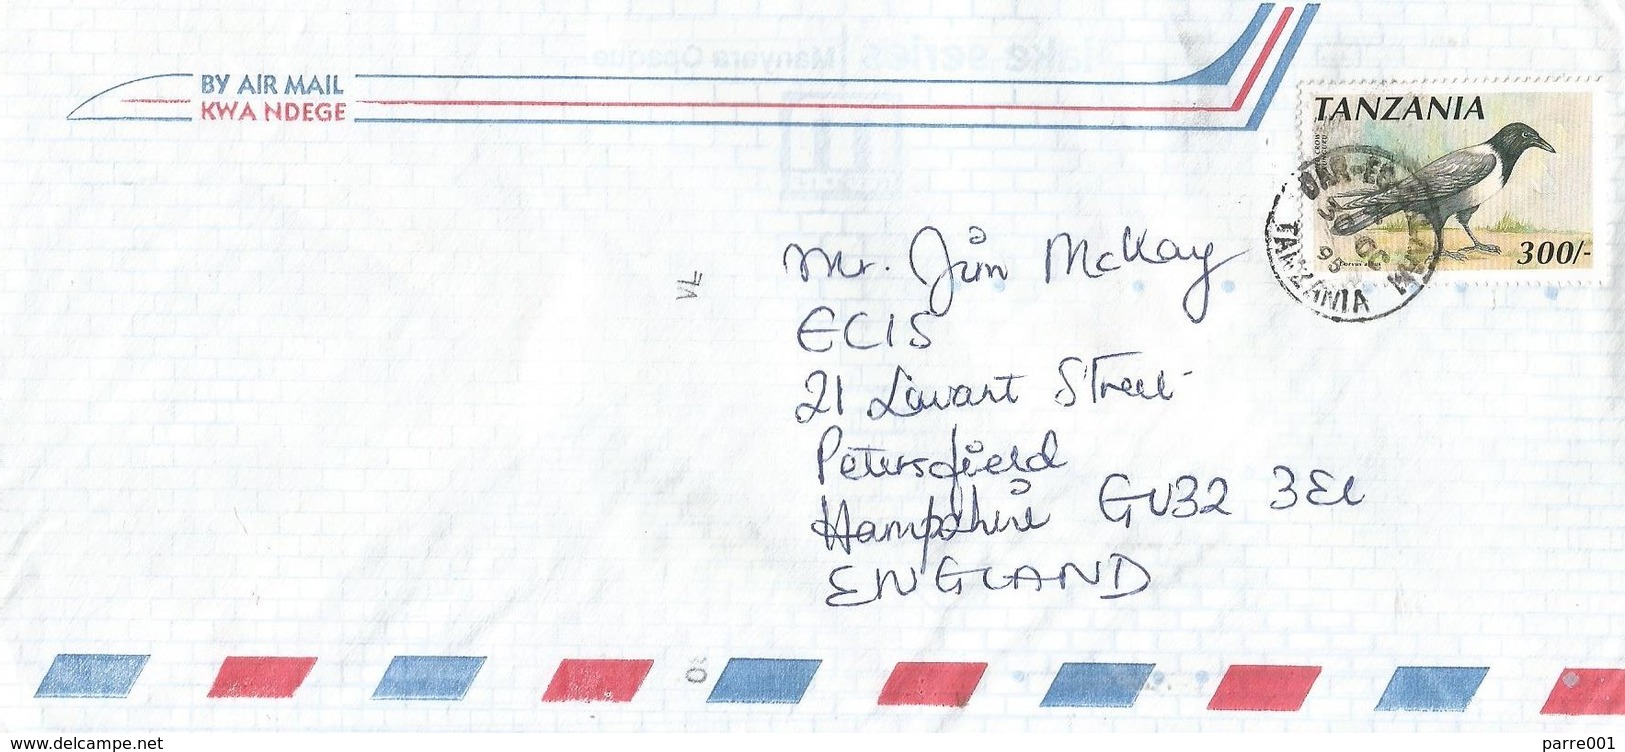 BY AIR MAIL
KWA NDEGE
TANZANIA
300/-
DAR-ES
30 OC
95
TANZANIA
Mr. Jim McKay
ECIS
21 Lavant Street
Petersfield
Hampshire GU32 3EL
ENGLAND
www.delcampe.net
parre001